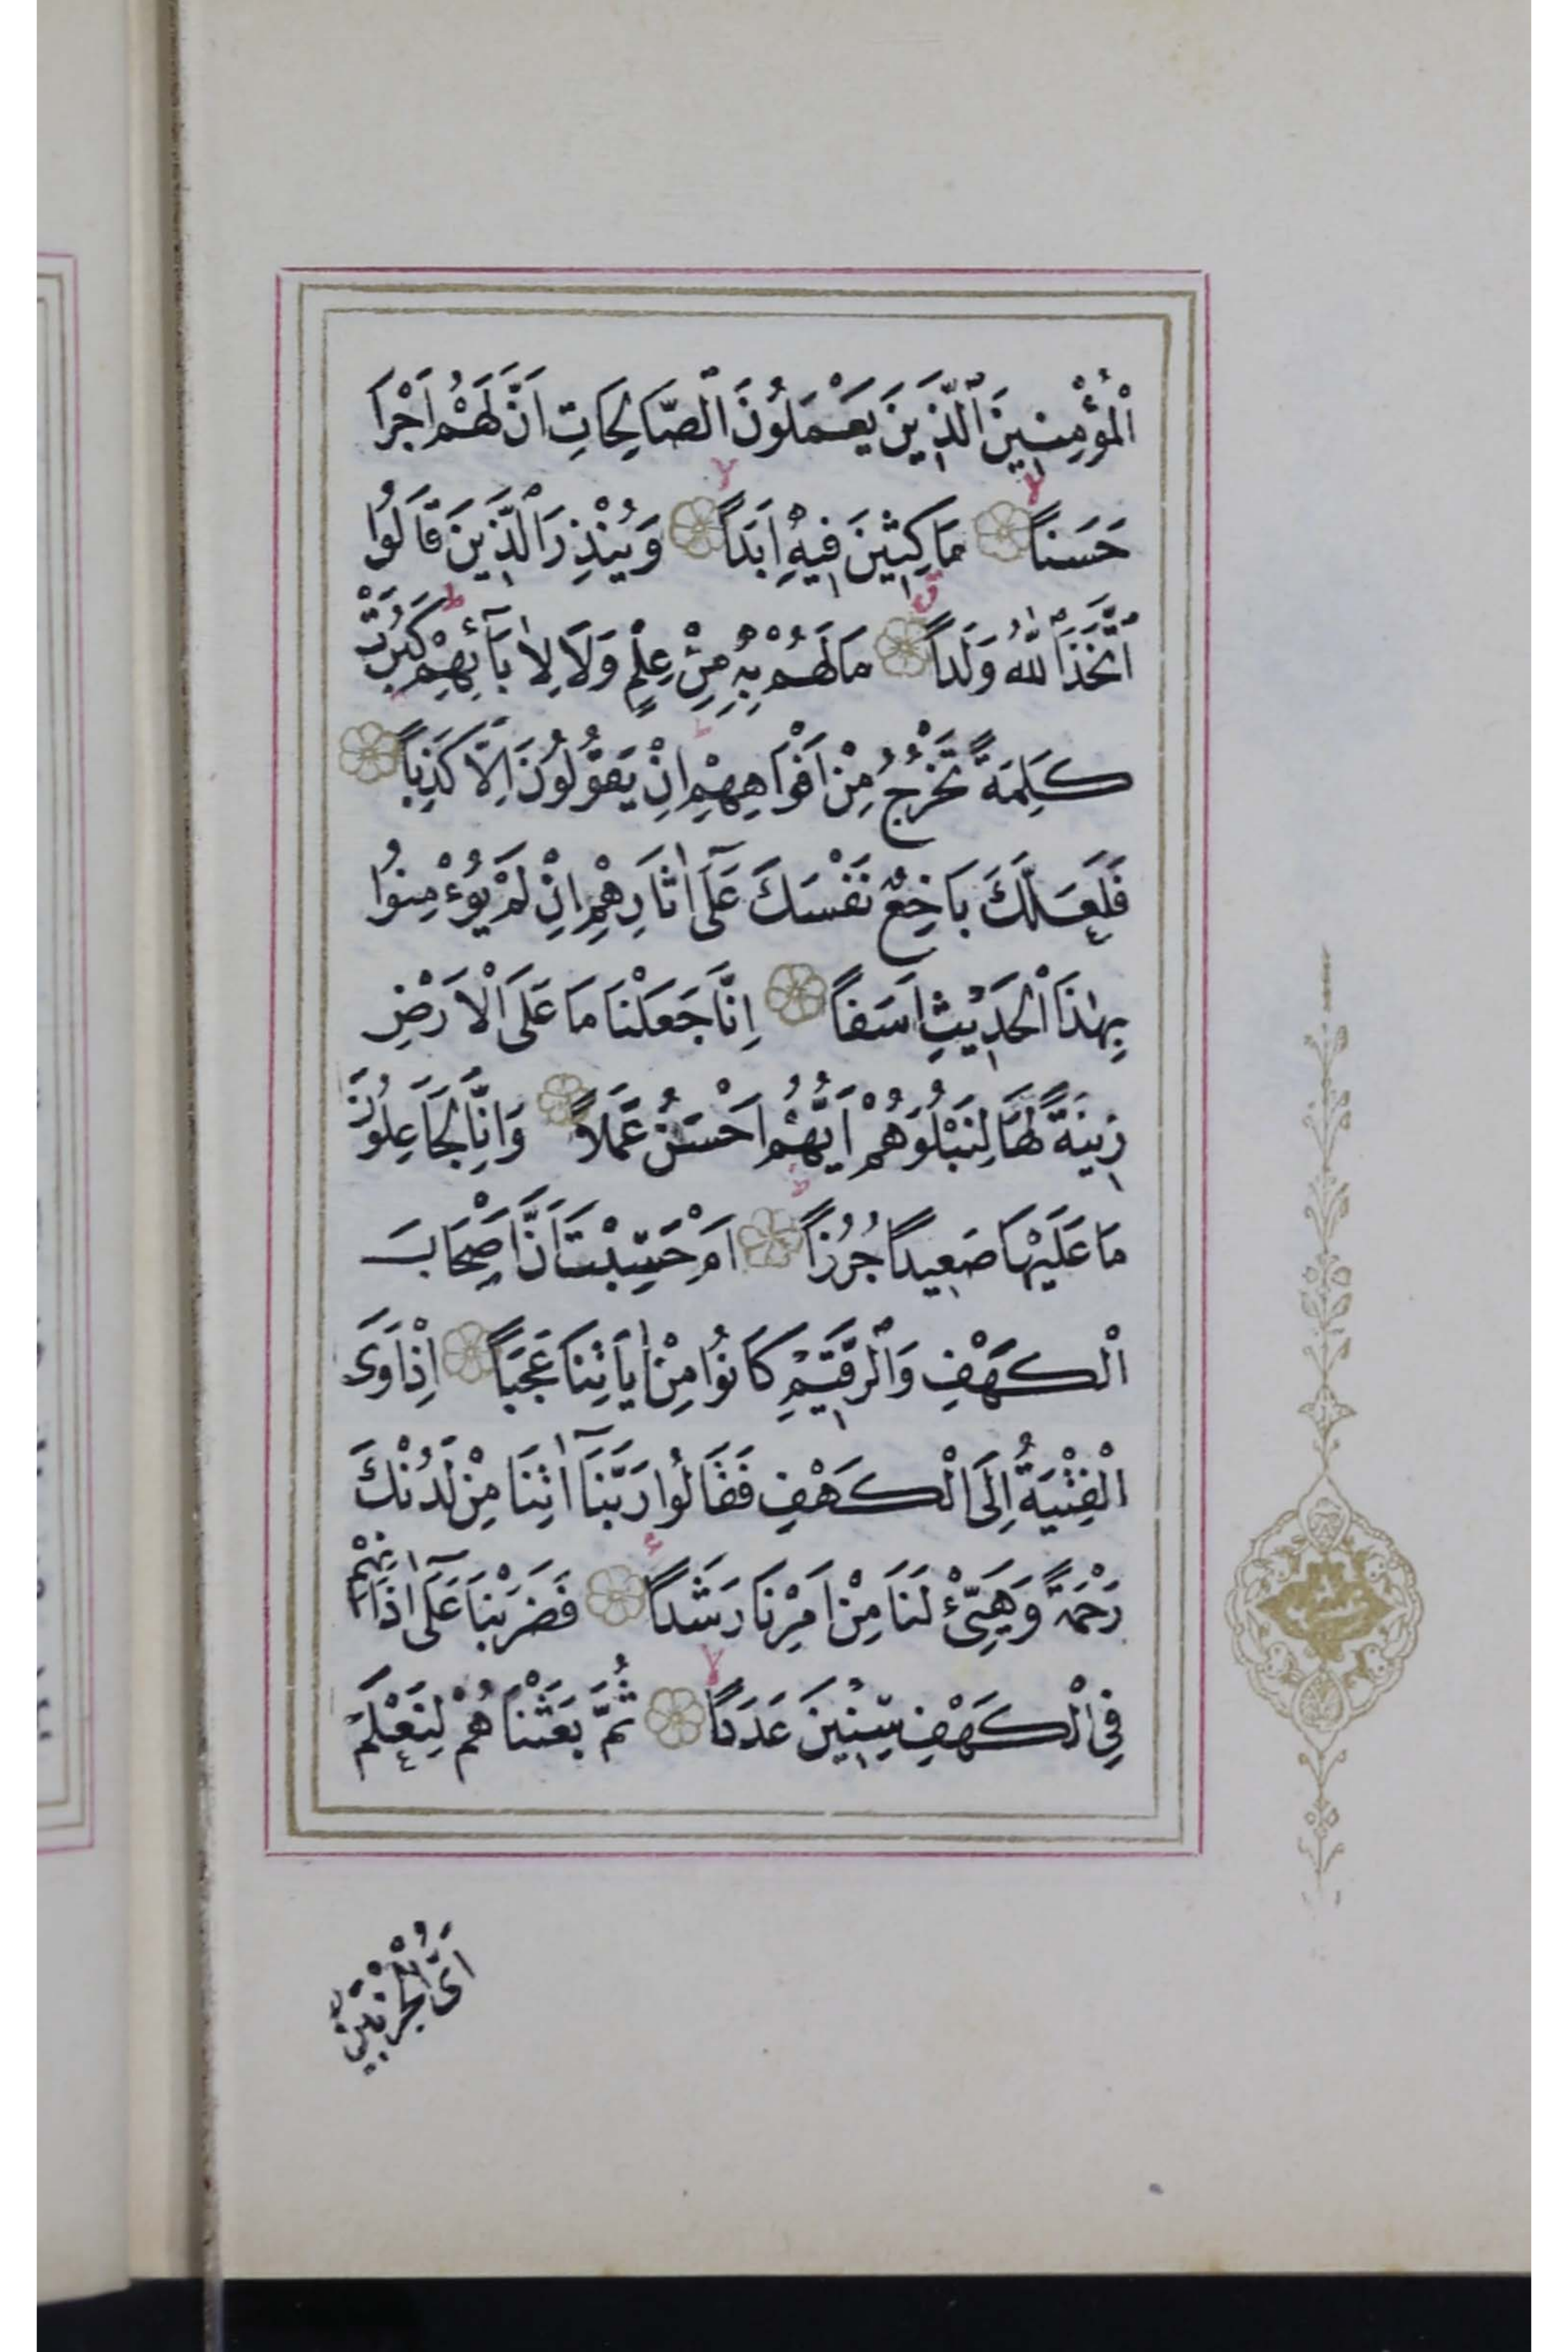 اْلمُؤْمِنِينَ ٱلَّذِينَ يَعْمَلُونَ ٱلصَّالِحَاتِ اَنَّ لَهُمْ اَجْرًا
حَسَنًا ۙ مَاكِثِينَ فِيهِ اَبَدًا ۙ وَيُنْذِرَ ٱلَّذِينَ قَالُوا
ٱتَّخَذَ ٱللّٰهُ وَلَدًا ق مَا لَهُمْ بِهِ مِنْ عِلْمٍ وَلَا لِاٰبَآئِهِمْ ط كَبُرَتْ
كَلِمَةً تَخْرُجُ مِنْ اَفْوَاهِهِمْ ط اِنْ يَقُولُونَ اِلَّا كَذِبًا
فَلَعَلَّكَ بَاخِعٌ نَفْسَكَ عَلَىٓ اٰثَارِهِمْ اِنْ لَمْ يُؤْمِنُوا
بِهٰذَا ٱلْحَدِيثِ اَسَفًا اِنَّا جَعَلْنَا مَا عَلَى ٱلْاَرْضِ
زِينَةً لَهَا لِنَبْلُوَهُمْ اَيُّهُمْ اَحْسَنُ عَمَلًا وَاِنَّا لَجَاعِلُونَ
مَا عَلَيْهَا صَعِيدًا جُرُزًا ط اَمْ حَسِبْتَ اَنَّ اَصْحَابَ
الْكَهْفِ وَٱلرَّقِيمِ كَانُوا مِنْ اٰيَاتِنَا عَجَبًا اِذْ اَوَى
الْفِتْيَةُ اِلَى الْكَهْفِ فَقَالُوا رَبَّنَآ اٰتِنَا مِنْ لَدُنْكَ
رَحْمَةً وَهَيِّئْ لَنَا مِنْ اَمْرِنَا رَشَدًا فَضَرَبْنَا عَلَىٓ اٰذَانِهِمْ
فِي ٱلْكَهْفِ سِنِينَ عَدَدًا ۙ ثُمَّ بَعَثْنَاهُمْ لِنَعْلَمَ
اَىُّ الْحِزْبَيْنِ